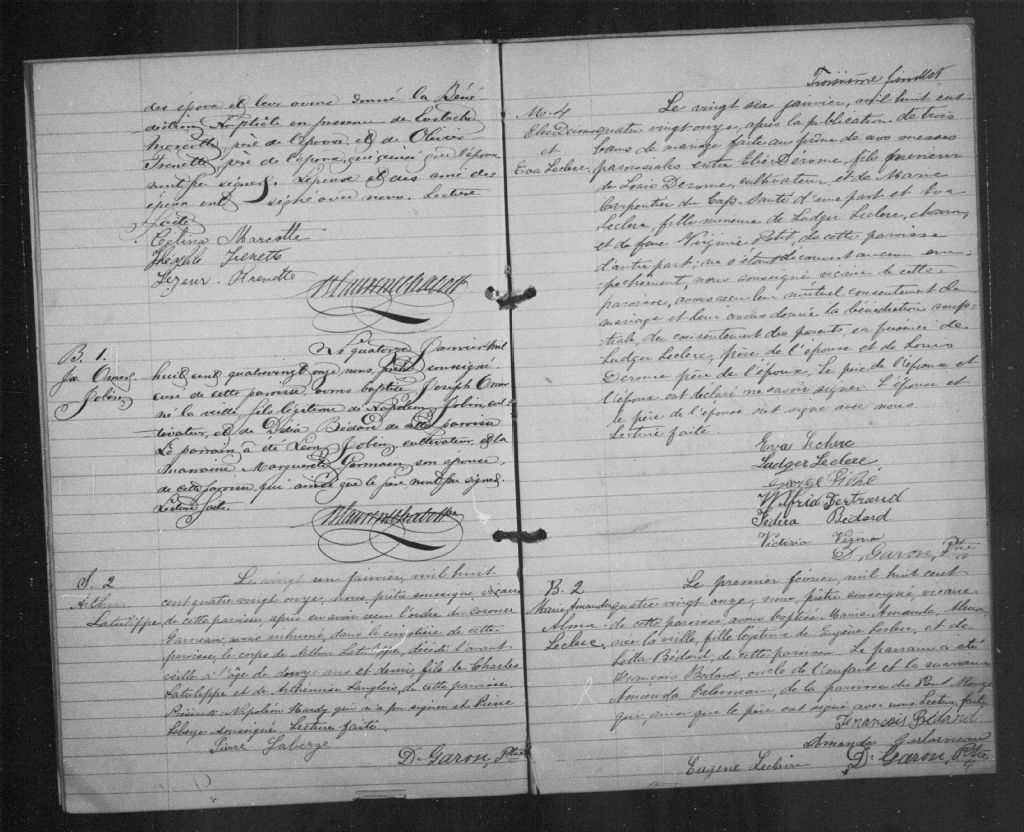 des époux et leur avons donné la Béné-
diction Nuptiale en présence de Eustache
Marcotte, père de l'épouse, et de Olivier
Frenette, père de l'époux, qui ainsi que l'époux
n'ont pu signer. L'épouse et des amis des
époux ont signé avec nous. Lecture
faite.
Célina Marcotte
Théophile Frenette
Frenette
B. 1.
Jos. Omer
Jobin
Le quatorze Janvier mil
huit cent quatrevingt onze nous, prêtre soussigné
curé de cette paroisse, avons baptisé Joseph Omer
né la veille, fils légitime de Napoléon Jobin, cul-
tivateur, et de Délia Bédard de cette paroisse
Le parrain a été Léon Jobin, cultivateur, et la
marraine Marguerite Germain, son épouse,
de cette paroisse, qui ainsi que le père n'ont pu signer.
Lecture faite.
S. 2
Arthur
Latulippe
Le vingt un janvier, mil huit
cent quatre vingt onze, nous, prêtre soussigné, vicaire
de cette paroisse, après en avoir reçu l'ordre du coroner
Garneau avons inhumé, dans le cimetière de cette
paroisse, le corps de Arthur Latulippe, décédé l'avant
veille à l'âge de douze ans et demi, fils de Charles
Latulippe et de Arthémise Langlois, de cette paroisse
Présents: Napoléon Hardy qui n'a pu signer et Pierre
Laberge soussigné. Lecture faite.
Pierre Laberge
D. Garon, Ptre
Troisième feuillet
M. 4
Elie Derome
et
Eva Leclerc,
Le vingt six janvier, mil huit cent
quatre vingt onze, après la publication de trois
bans de mariage faite au prône de nos messes
paroissiales entre Elie Derome, fils mineur
de Louis Derome, cultivateur et de Marie
Carpentier du Cap-Santé d'une part et Eva
Leclerc, fille mineure de Ludger Leclerc,
et de feue Virginie Petit, de cette paroisse
d'autre part; ne s'étant découvert aucun em-
pêchement, nous soussigné vicaire de cette
paroisse, avons reçu leur mutuel consentement du
mariage et leur avons donné la bénédiction nup-
tiale, du consentement des parents, en présence de
Ludger Leclerc, père de l'épouse et de Louis
Derome père de l'époux. Le père de l'époux et
l'époux ont déclaré ne savoir signer. L'épouse et
le père de l'épouse ont signé avec nous.
Lecture faite.
Eva Leclerc
Ludger Leclerc
George Piché
Wilfrid Bertrand
Fedéra Bédard
Victoria Vezina
D. Garon, Ptre
B. 2
Marie Amanda
Alma
Leclerc
Le premier février, mil huit cent
quatre vingt onze, nous, prêtre soussigné, vicaire
de cette paroisse, avons baptisé Marie Amanda, Alma
née la veille, fille légitime de Eugène Leclerc, et de
Léda Bédard de cette paroisse. Le parrain a été
François Bédard, oncle de l'enfant et la marraine
Amanda Galarneau, de la paroisse du Pont-Rouge
qui ainsi que le père ont signé avec nous Lecture faite
François Bédard
Amanda Galarneau
Eugène Leclaire
D. Garon, Ptre